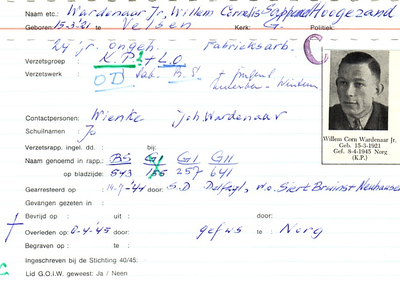 Naam etc.: Wardenaar Jr, Willem Cornelis Sappemeer Hoogezand
Geboren: 15.3.'21 te Velsen Kerk: G. Politiek:
24 jr. ongeh. Fabrieksarb.
Verzetsgroep : K.P. + L.O.
Verzetswerk : OD Sab. B.S. +
Contactpersonen: Wienke Joh Wardenaar
Schuilnaam : Jo
Verzetsrapp. ingel. dd. : bij:
Naam genoemd in rapp.: BS GI GI GII
op bladzijde: 543 155 257 641
Gearresteerd op : 14-7-'44 door: S.D Delfzijl, w.o. Siert Bruinst Neuhauser
Gevangen gezeten in :
Bevrijd op : uit : door:
† Overleden op : 8-4-'45 door: gef ws te : Norg
Begraven op : te :
Ingeschreven bij de Stichting 40/45:
Lid G.O.I.W. geweest: Ja / Neen
Willem Corn Wardenaar Jr.
Geb. 15-3-1921
Gef. 8-4-1945 Norg
(K.P.)